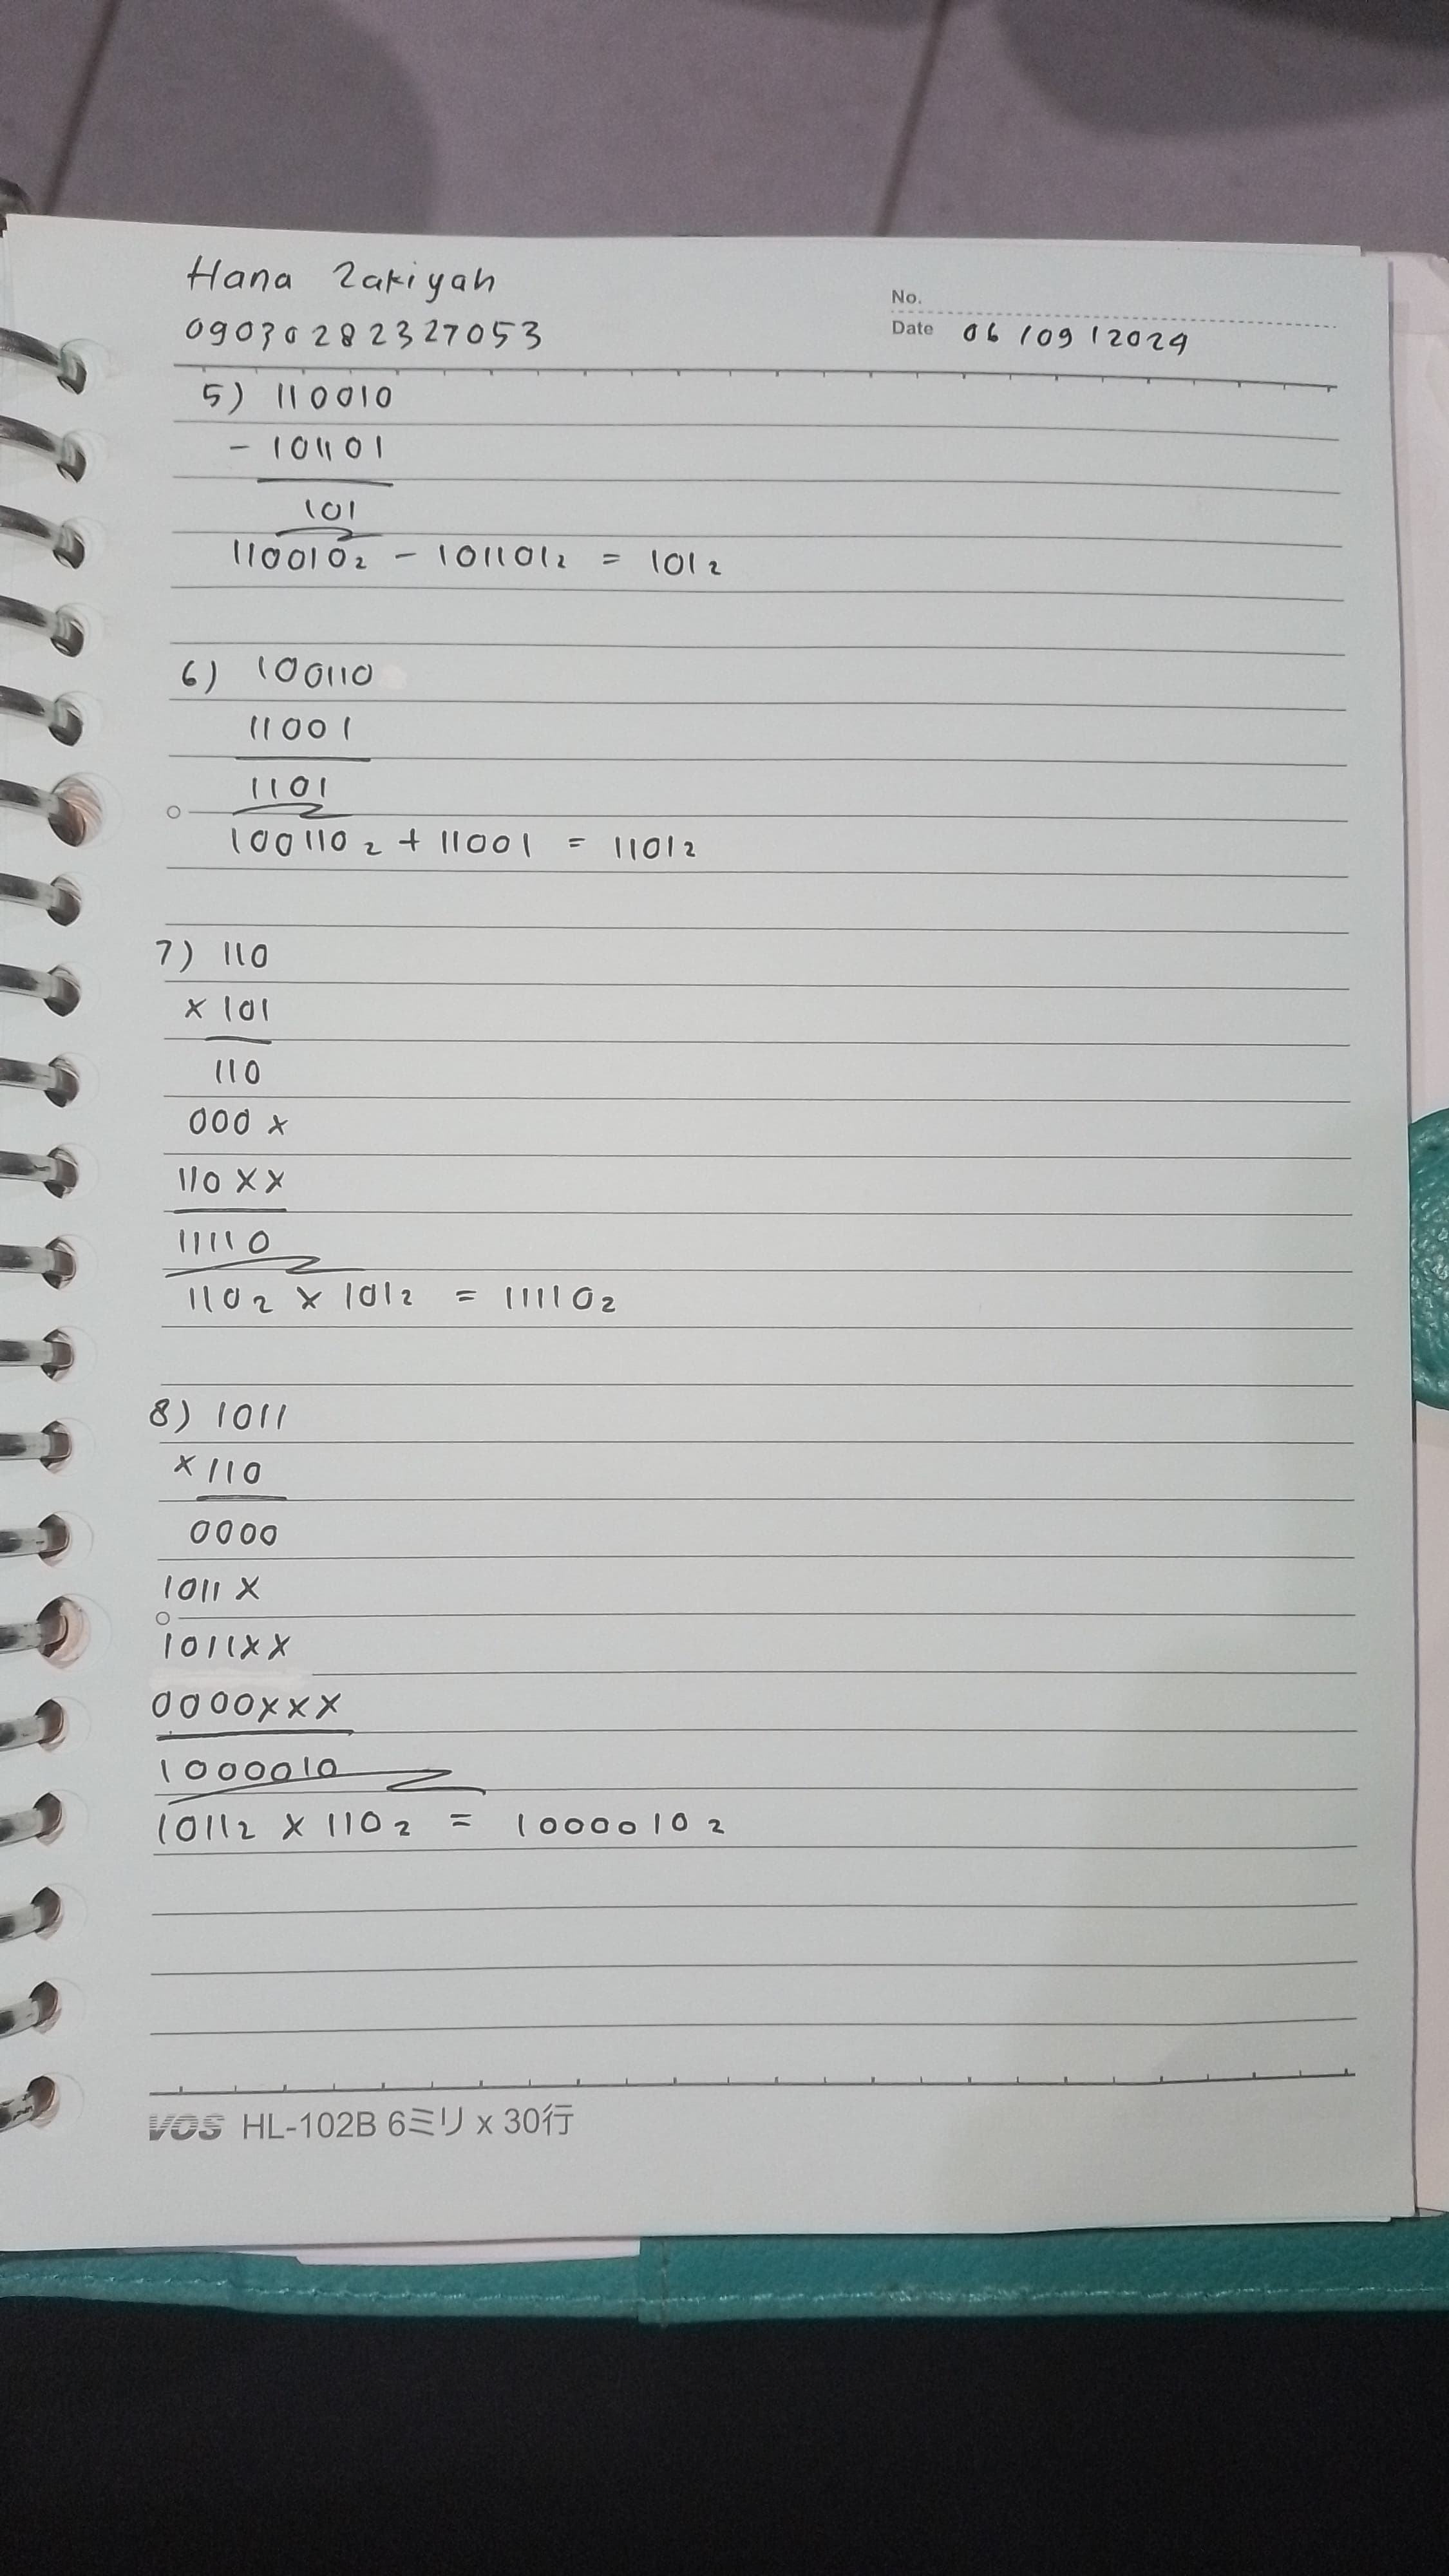 Hana Zakiyah
09030282327053
No.
Date 06/09/2024
5) 110010
- 101101
101
110010₂ - 101101₂ = 101₂
6) 100110
11001
1101
100110₂ + 11001 = 1101₂
7) 110
x 101
110
000 x
110 x x
11110
110₂ x 101₂ = 11110₂
8) 1011
x 110
0000
1011 x
1011xx
0000xxx
1000010
1011₂ x 110₂ = 1000010₂
VOS HL-102B 6ミリ x 30行